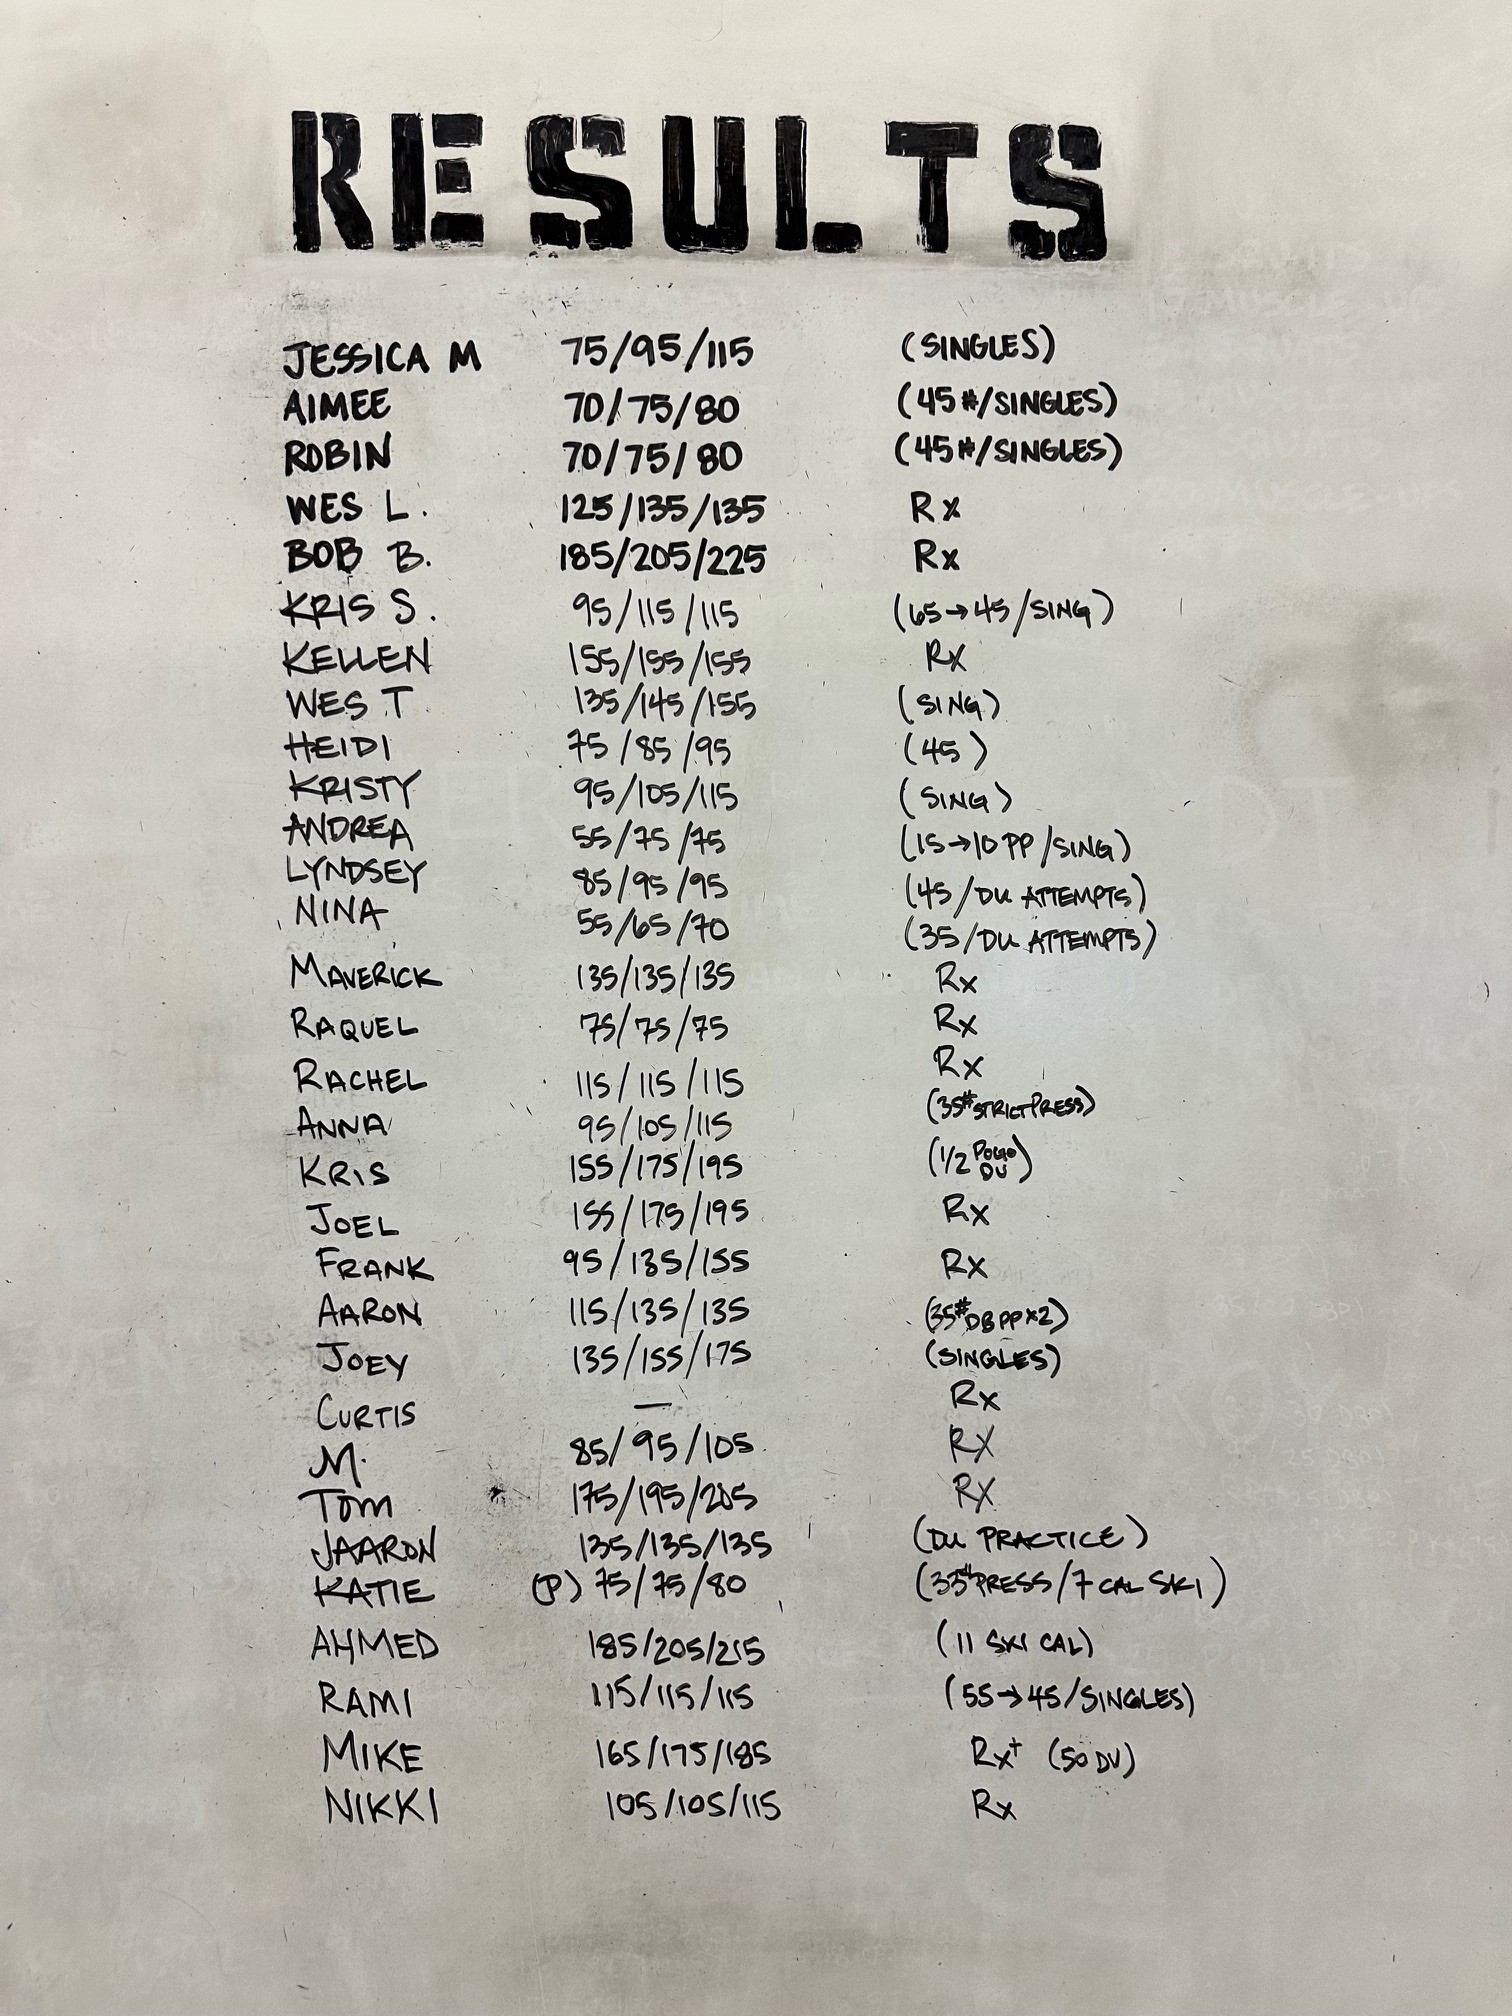 RESULTS
JESSICA M 75/95/115 (SINGLES)
AIMEE 70/75/80 (45#/SINGLES)
ROBIN 70/75/80 (45#/SINGLES)
WES L. 125/135/135 Rx
BOB B. 185/205/225 Rx
KRIS S. 95/115/115 (65→45/SING)
KELLEN 155/155/155 Rx
WES T 135/145/155 (SING)
HEIDI 75/85/95 (45)
KRISTY 95/105/115 (SING)
ANDREA 55/75/75 (15→10 PP/SING)
LYNDSEY 85/95/95 (45/DU ATTEMPTS)
NINA 55/65/70 (35/DU ATTEMPTS)
MAVERICK 135/135/135 Rx
RAQUEL 75/75/75 Rx
RACHEL 115/115/115 Rx
ANNA 95/105/115 (35# STRICT PRESS)
KRIS 155/175/195 (1/2 POGO DU)
JOEL 155/175/195 Rx
FRANK 95/135/155 Rx
AARON 115/135/135 (35# DB PP x2)
JOEY 135/155/175 (SINGLES)
CURTIS — Rx
M. 85/95/105 RX
TOM 175/195/205 RX
JAARON 135/135/135 (DU PRACTICE)
KATIE (P) 75/75/80 (33# PRESS/7 CAL SKI)
AHMED 185/205/215 (11 SKI CAL)
RAMI 115/115/115 (55→45/SINGLES)
MIKE 165/175/185 Rx+ (50 DU)
NIKKI 105/105/115 Rx